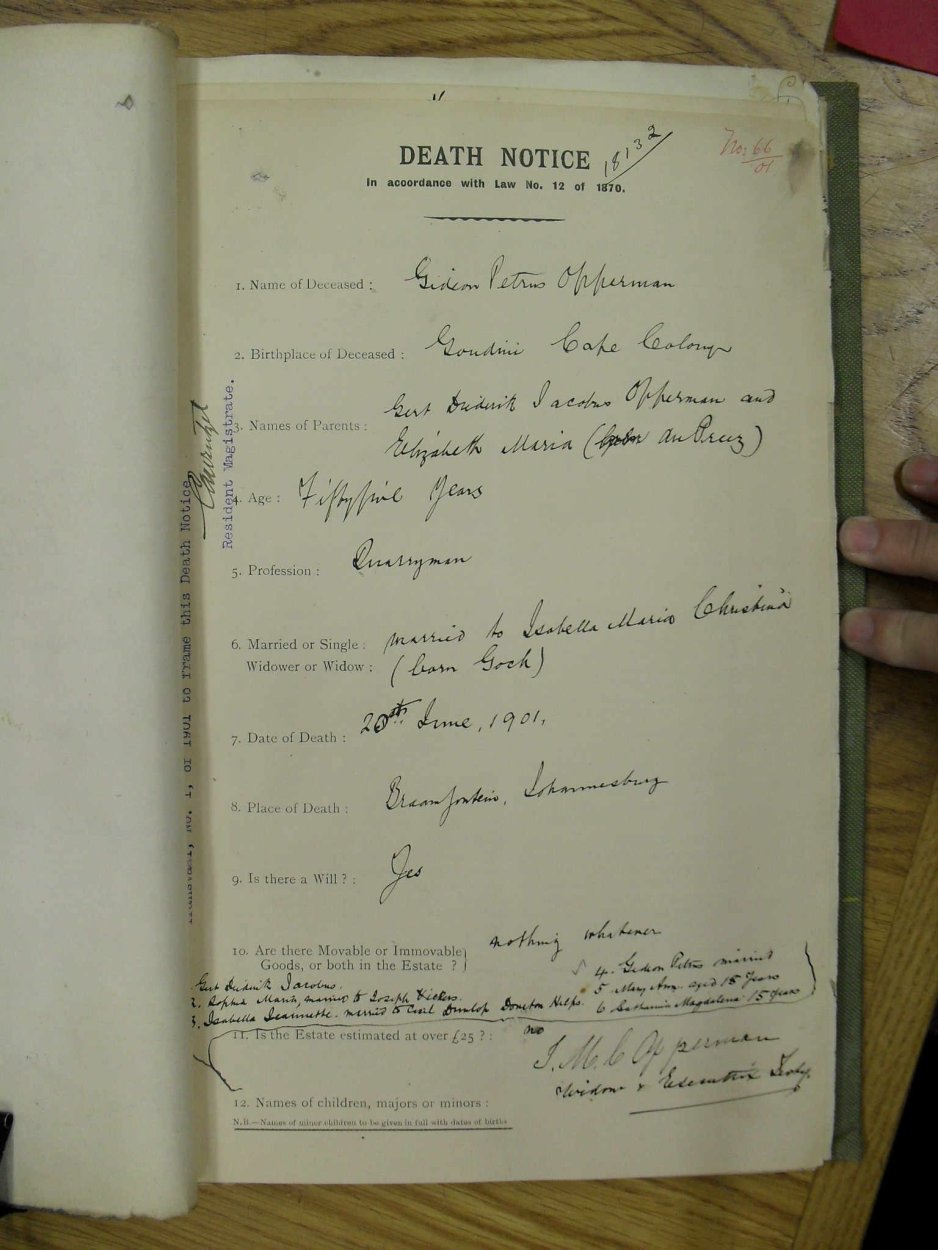 18132
No: 66/01
DEATH NOTICE
In accordance with Law No. 12 of 1870.
1. Name of Deceased : Gideon Petrus Opperman
2. Birthplace of Deceased : Goudini Cape Colony
Gert Diederik Jacobus Opperman and
3. Names of Parents :
Elizabeth Maria (born du Preez)
4. Age : Fiftyfive Years
5. Profession : Quarryman
6. Married or Single : married to Isabella Maria Christina
Widower or Widow : (born Goch)
7. Date of Death : June, 1901.
8. Place of Death : Braamfontein, Johannesburg
9. Is there a Will ? : Yes
10. Are there Movable or Immovable nothing whatever
Goods, or both in the Estate ? }
4. Gideon Petrus married
Gert Diederik Jacobus.
5 Mary Ann aged 18 Years
2. Sophia Maria, married to Joseph Vickers.
6 Catharina Magdalena 15 Years
3. Isabella Jeannette. married to Cecil Dunlop
11. Is the Estate estimated at over £25 ? : no
I. M. C Opperman
Widow & Executrix Testy.
12. Names of children, majors or minors :
N.B.—Names of minor children to be given in full with dates of births
No. 1, of 1901 to frame this Death Notice,
Resident Magistrate.